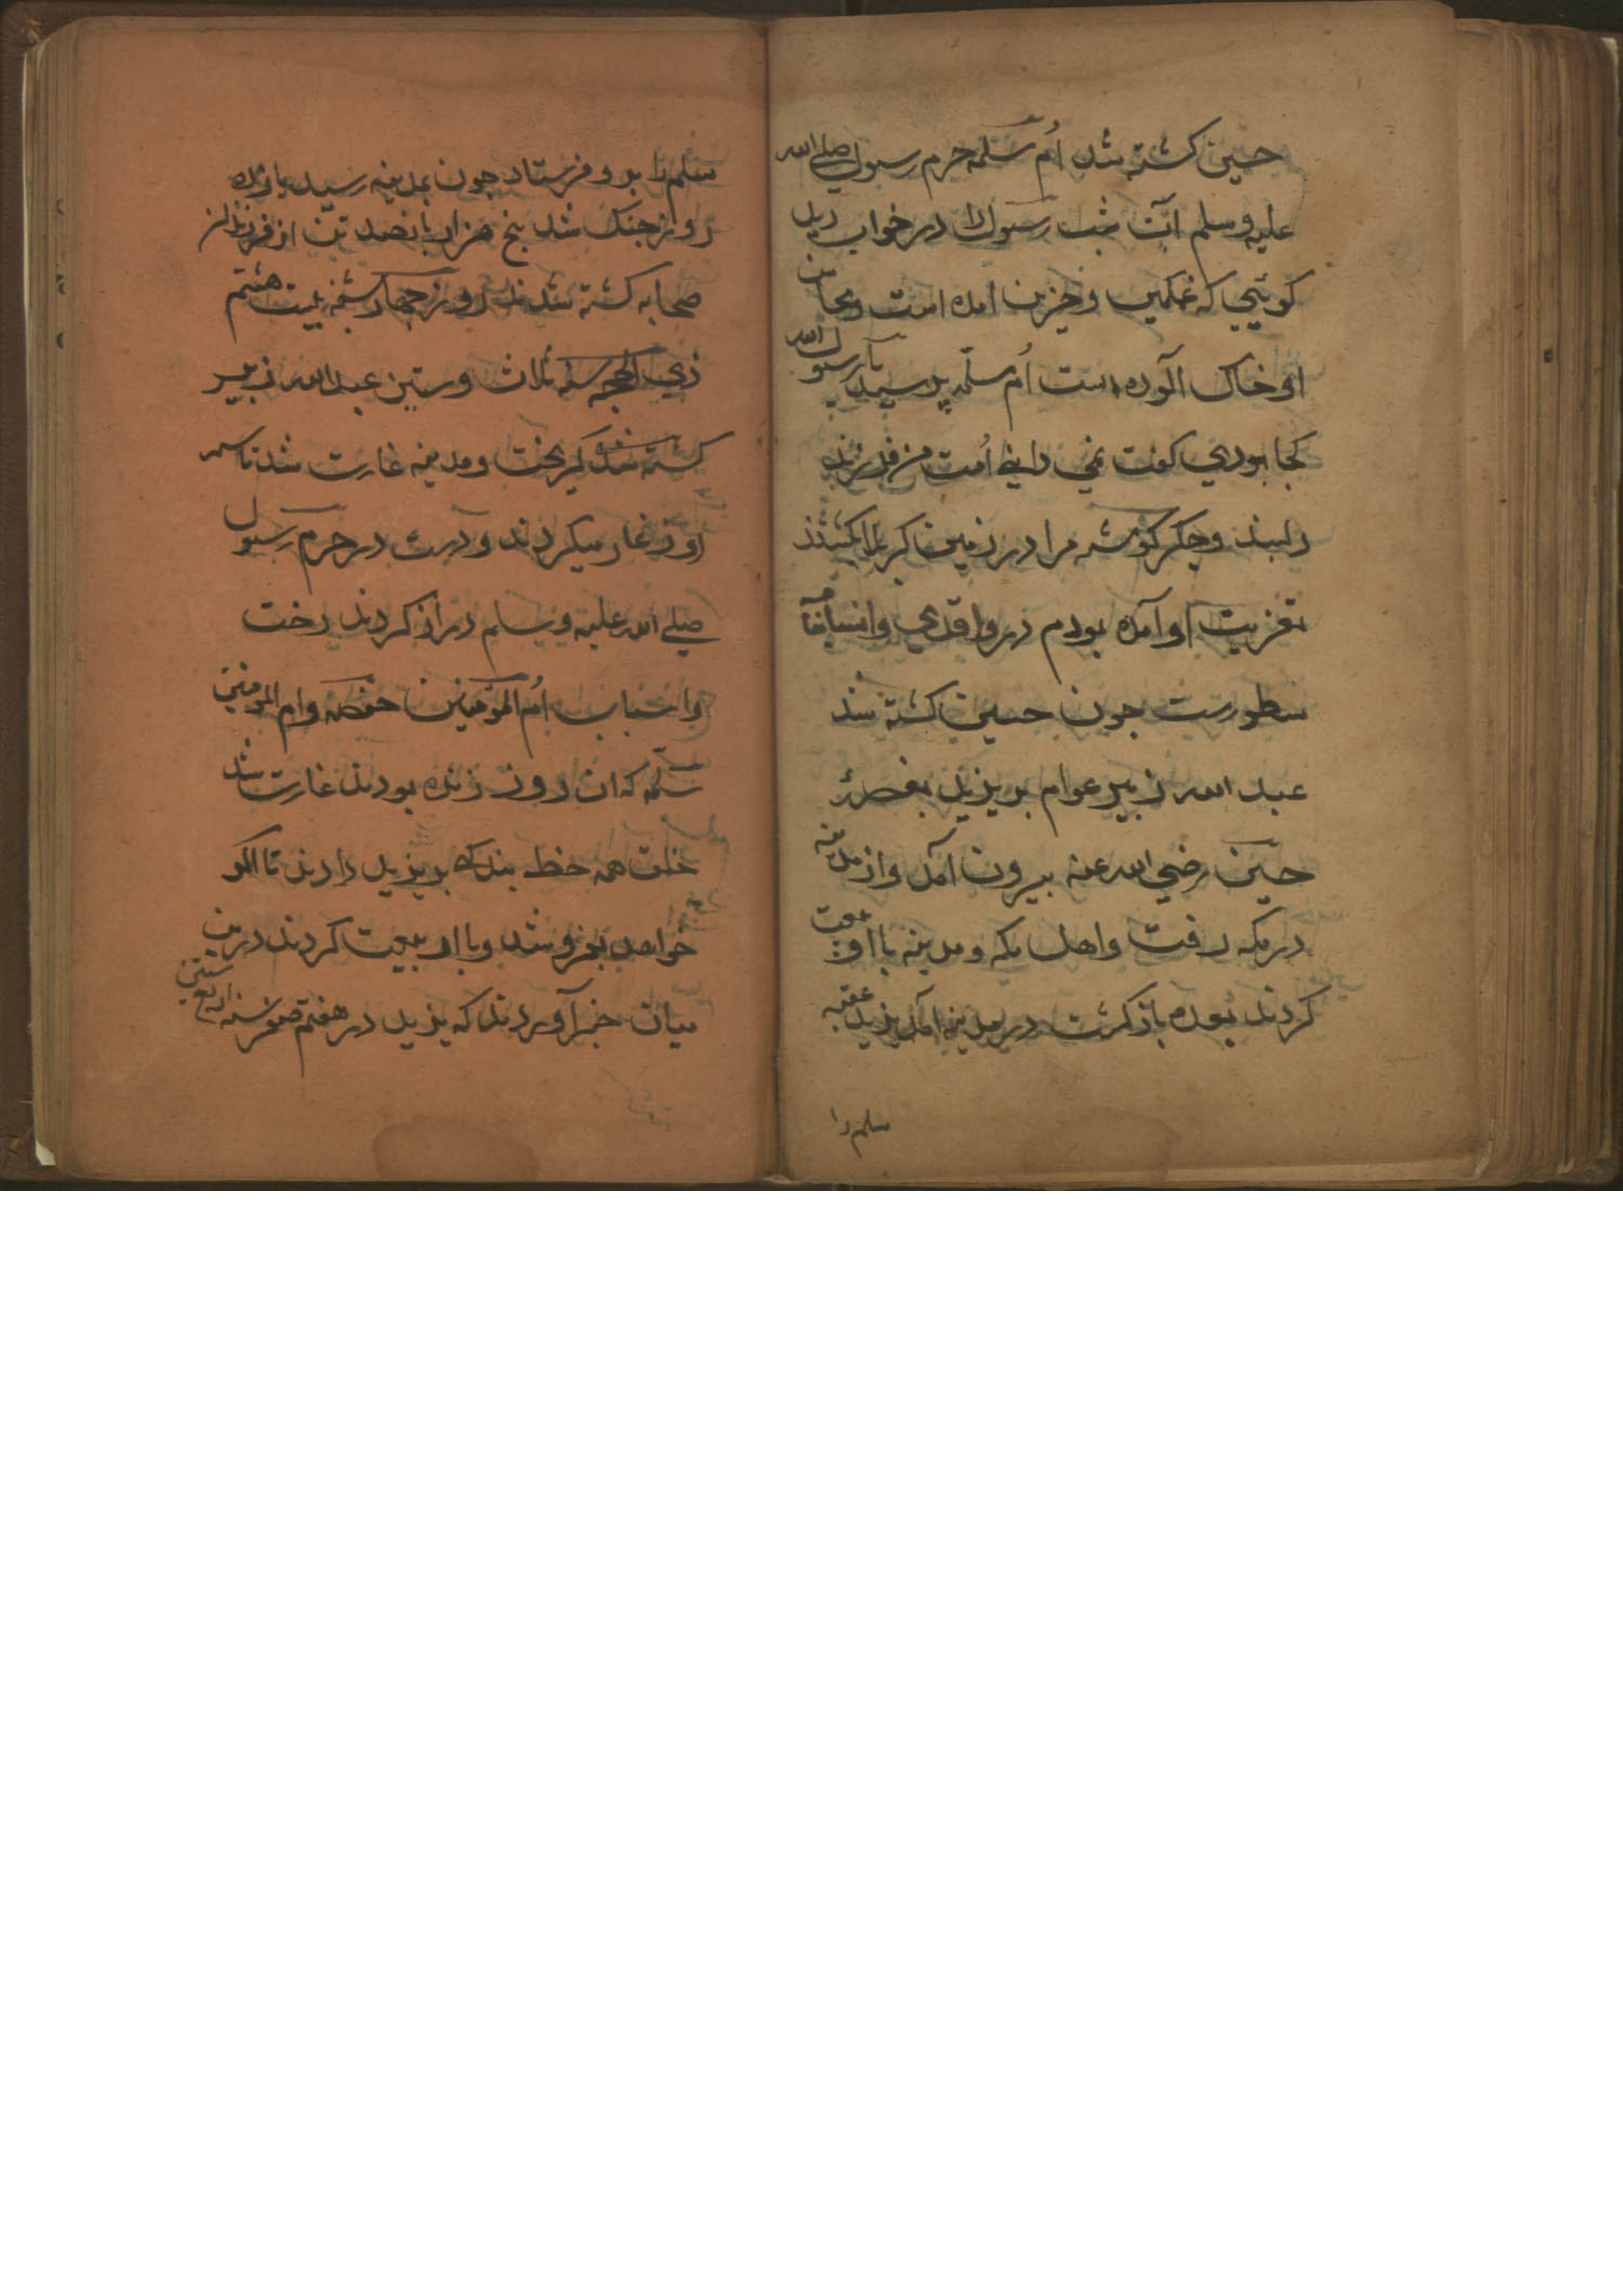 حسین کشته شد اُم سلمه حرم رسول صلی الله
علیه وسلم آن شب رسول را در خواب دید
کوئیی که غمکین و حزین امده است و محاسن
او خاک آلوده است اُم سلمه پرسید یا رسول الله
کجا بودی کفت نمی دانی اُمت من فرزند
دلبند و جکر کوشه مرا در زمین کربلا کشتند
تعزیت او آمده بودم در واقدی و انساب
سطورست جون حسین کشته شد
عبد الله زبیر عوام بر یزید بغصه
حسین رضی الله عنه بیرون آمد و از مدینه
در مکه رفت واهل مکه و مدینه با او بیعت
کردند بوده باز کشت در مدینه آمد یزید عقبه
سلم را
سلم را برو فرستاد جون بمدینه رسید یازده
روز جنک شد پنج هزار پانصد تن از فرزندان
صحابه کشته شدند روز جهار شنبه بیست هشتم
ذی الحجه سنه ثلاث وستین عبد الله زبیر
کشته شد کریخت و مدینه غارت شد تا سه
روز غارت میکردند و دست در حرم رسول
صلی الله علیه وسلم دراز کردند رخت
واسباب اُم المومنین حفصه وام المومنین
سلمه که ان روز زنده بودند غارت شد
خلق همه خط بندکی بر یزید دادند تا اکر
خواهد بفروشد وبا او بیعت کردند درین
میان خبر آوردند که یزید در هفتم صفر سنه اربع ستین